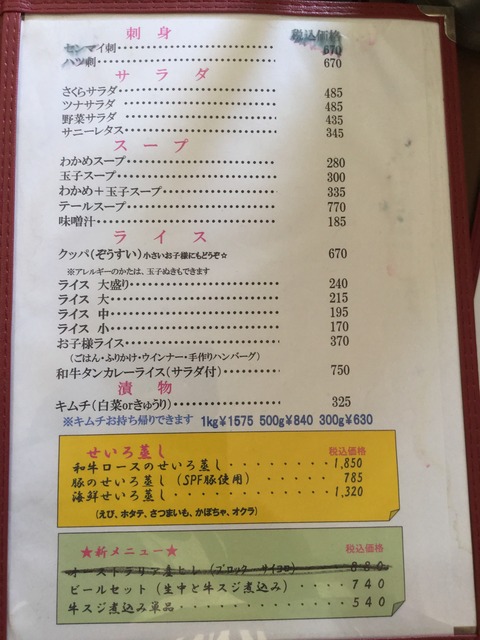 刺身 税込価格
センマイ刺 670
ハツ刺 670
サラダ
さくらサラダ 485
ツナサラダ 485
野菜サラダ 435
サニーレタス 345
スープ
わかめスープ 280
玉子スープ 300
わかめ＋玉子スープ 335
テールスープ 770
味噌汁 185
ライス
クッパ(ぞうすい)小さいお子様にもどうぞ☆ 670
※アレルギーのかたは、玉子ぬきもできます
ライス 大盛り 240
ライス 大 215
ライス 中 195
ライス 小 170
お子様ライス 370
(ごはん・ふりかけ・ウインナー・手作りハンバーグ)
和牛タンカレーライス(サラダ付) 750
漬物
キムチ(白菜orきゅうり) 325
※キムチお持ち帰りできます 1kg¥1575 500g¥840 300g¥630
せいろ蒸し 税込価格
和牛ロースのせいろ蒸し 1,850
豚のせいろ蒸し(SPF豚使用) 785
海鮮せいろ蒸し 1,320
(えび、ホタテ、さつまいも、かぼちゃ、オクラ)
★新メニュー★ 税込価格
オーストラリア産ヒレ(ブロック サイコロ) 880
ビールセット(生中と牛スジ煮込み) 740
牛スジ煮込み単品 540